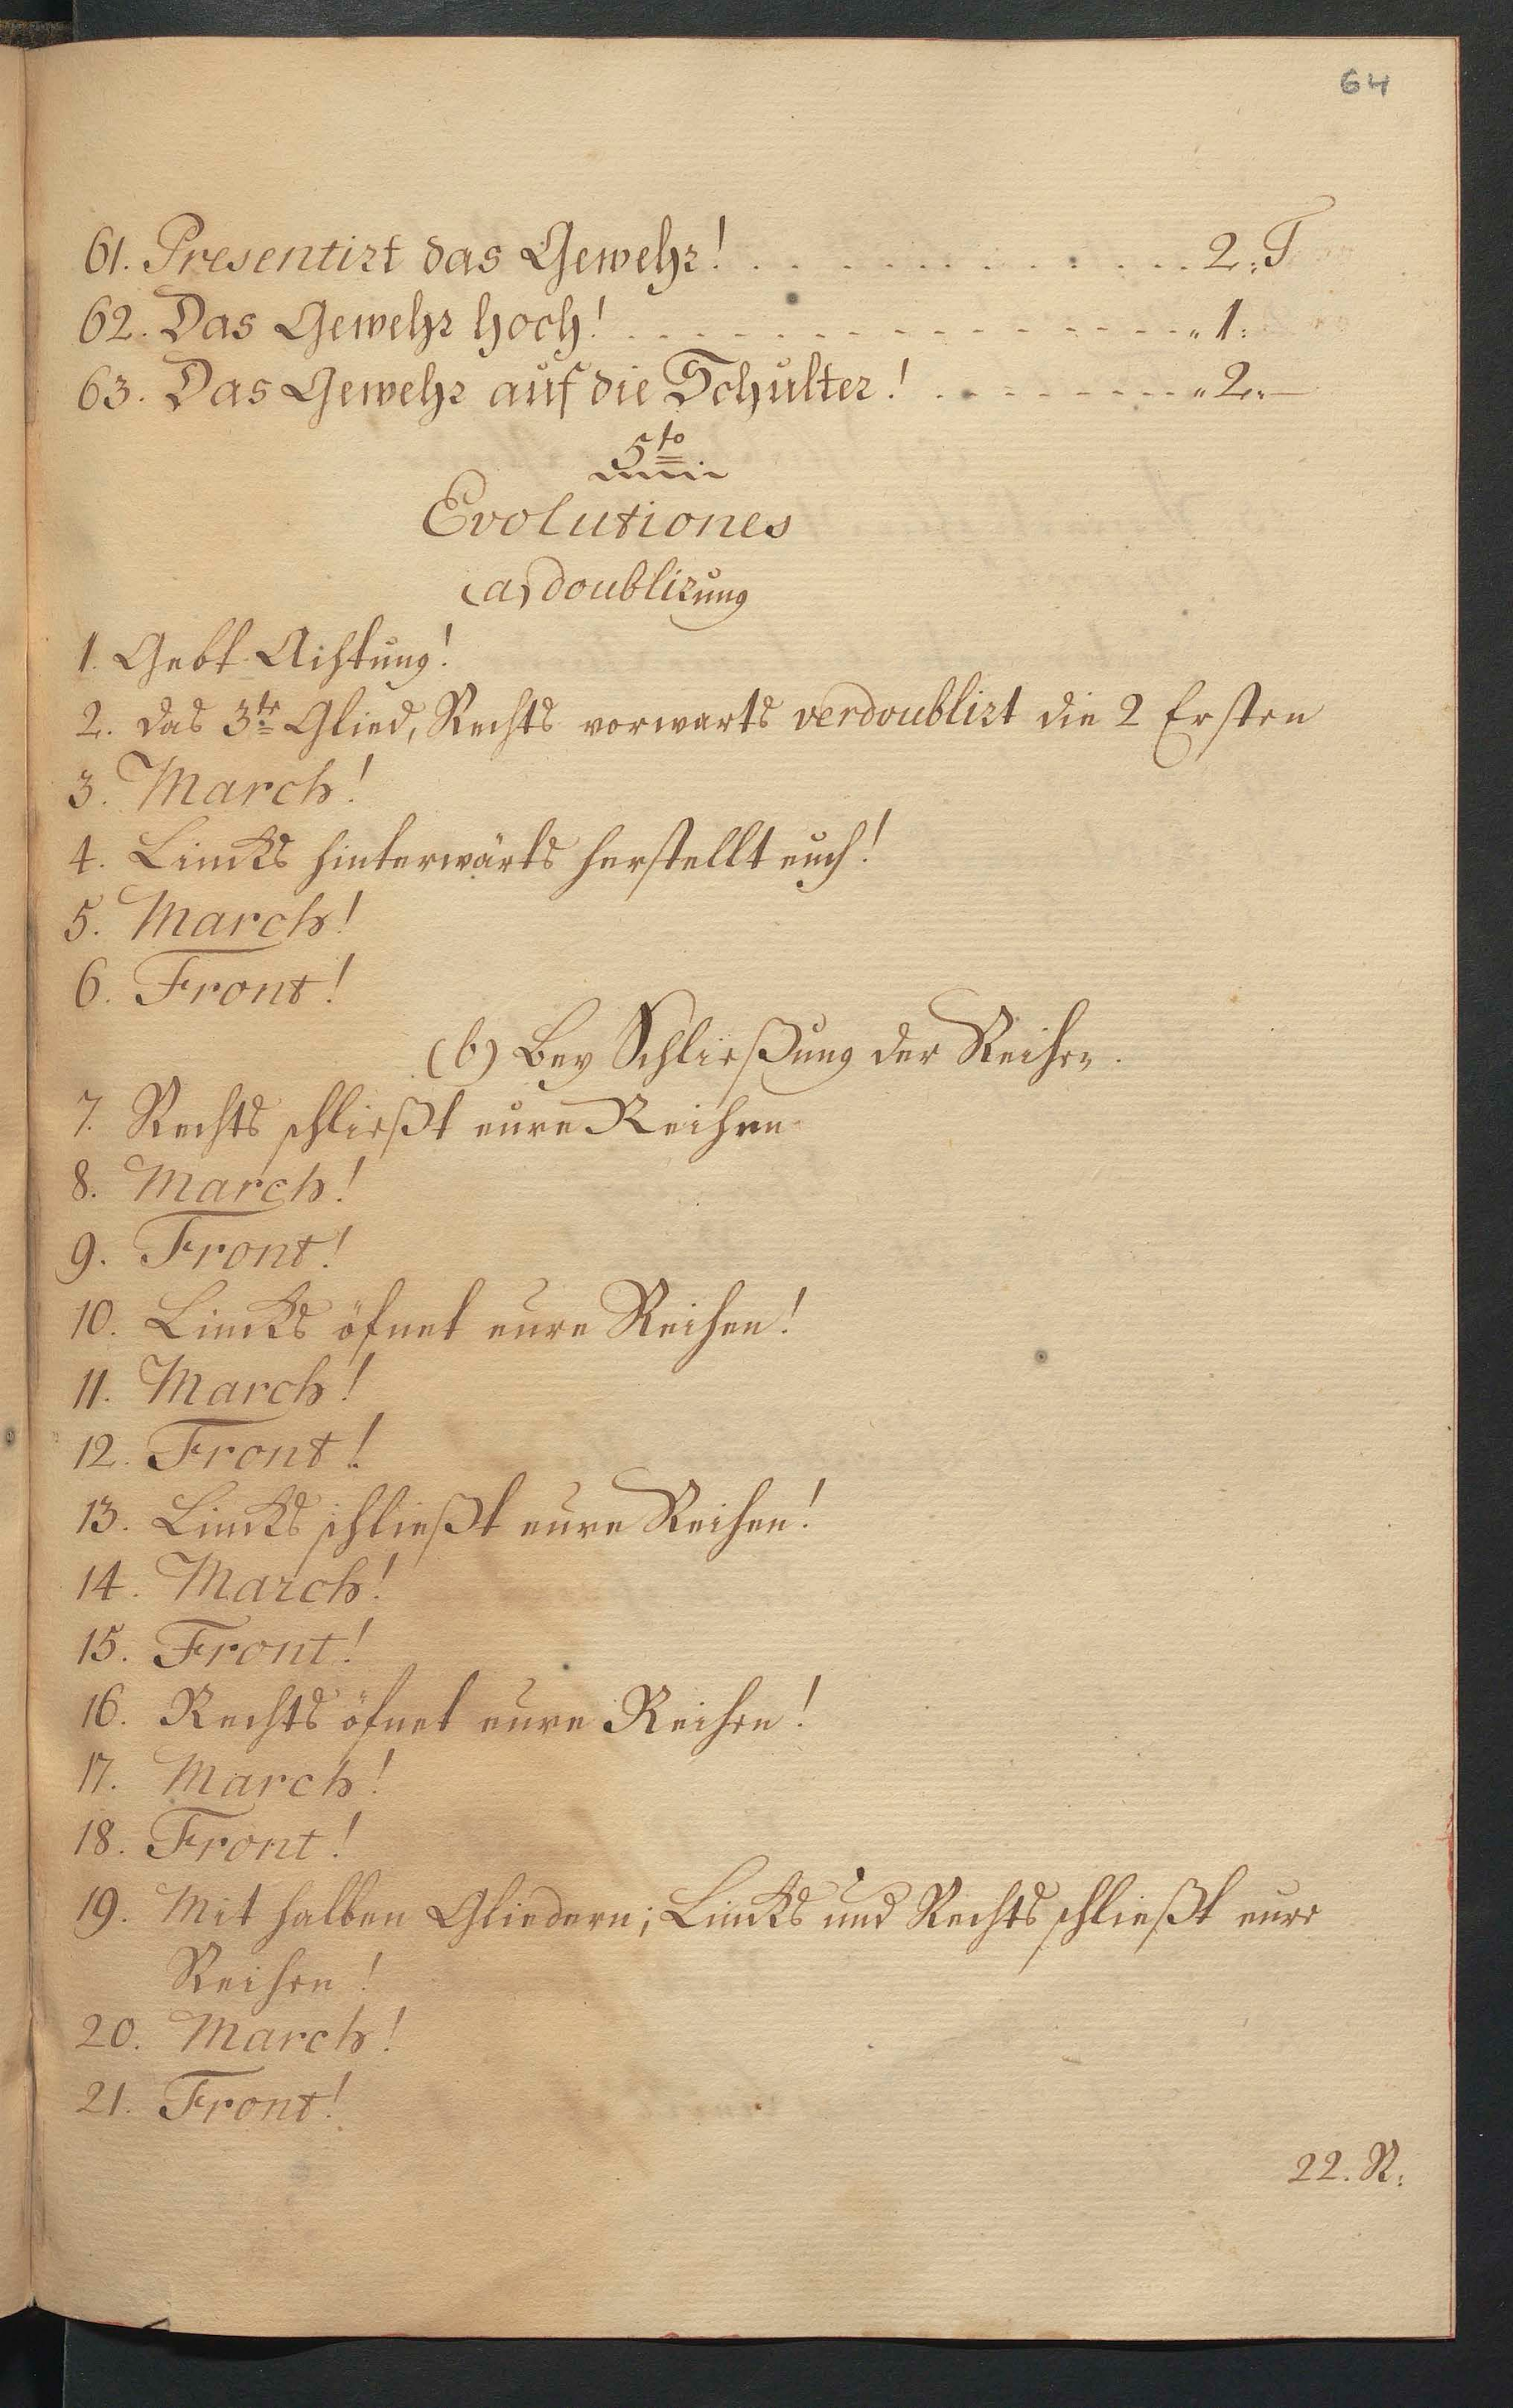 64
61. Presentirt das Gewehr! . . . . . . . . . . . . . . 2. T
62. Das Gewehr hoch! . . . . - - - - - - - - - - - - - - „ 1.
63. Das Gewehr auf die Schulter! . - - - - - - - - - „ 2. —
5to
Evolutiones
(a) doublirung
1. Gebt Achtung!
2. Das 3te Glied, Rechts vorwarts verdoublirt die 2 Ersten
3. March!
4. Lincks hinterwärts herstellt euch!
5. March!
6. Front!
(b) Bey Schließung der Reihen.
7. Rechts schließt eure Reihen
8. March!
9. Front!
10. Lincks öfnet eure Reihen!
11. March!
12. Front!
13. Lincks schließt eure Reihen!
14. March!
15. Front!
16. Rechts öfnet eure Reihen!
17. March!
18. Front!
19. Mit halben Gliedern; Lincks und Rechts schließt eure
Reihen!
20. March!
21. Front!
22. R: